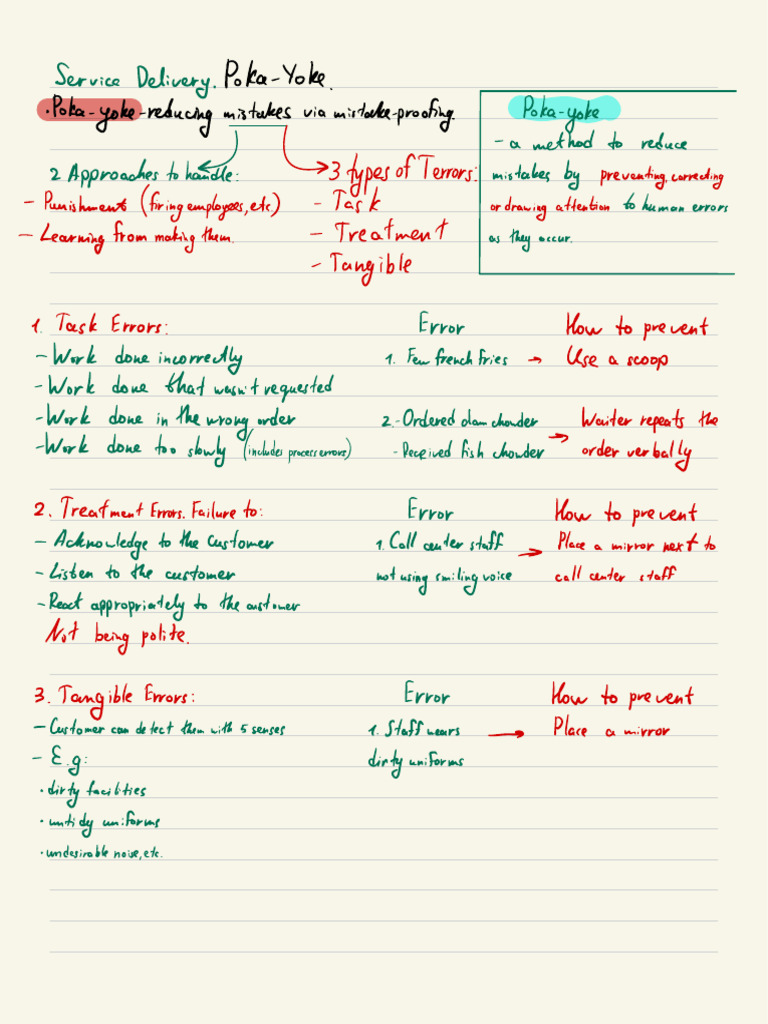 Service Delivery. Poka-Yoke.
• Poka-yoke - reducing mistakes via mistake-proofing.
2 Approaches to handle:
- Punishment (firing employees, etc)
- Learning from making them.
3 types of Terrors:
- Task
- Treatment
- Tangible
Poka-yoke
- a method to reduce
mistakes by preventing, correcting
or drawing attention to human errors
as they occur.
1. Task Errors:
- Work done incorrectly
- Work done that wasn't requested
- Work done in the wrong order
- Work done too slowly (includes process errors)
Error How to prevent
1. Few french fries → Use a scoop
2. - Ordered clam chowder → Waiter repeats the
- Received fish chowder order verbally
2. Treatment Errors. Failure to:
- Acknowledge to the Customer
- Listen to the customer
- React appropriately to the customer
Not being polite.
Error How to prevent
1. Call center staff → Place a mirror next to
not using smiling voice call center staff
3. Tangible Errors:
- Customer can detect them with 5 senses
- E.g:
• dirty facilities
• untidy uniforms
• undesirable noise, etc.
Error How to prevent
1. Staff wears → Place a mirror
dirty uniforms